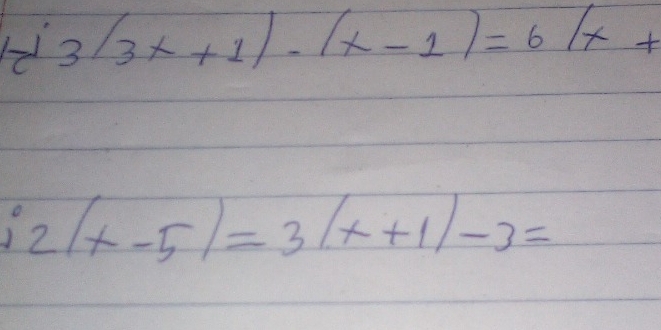 i 3(3x+1)-(x-1)=6(x+
i 2(x-5)=3(x+1)-3=